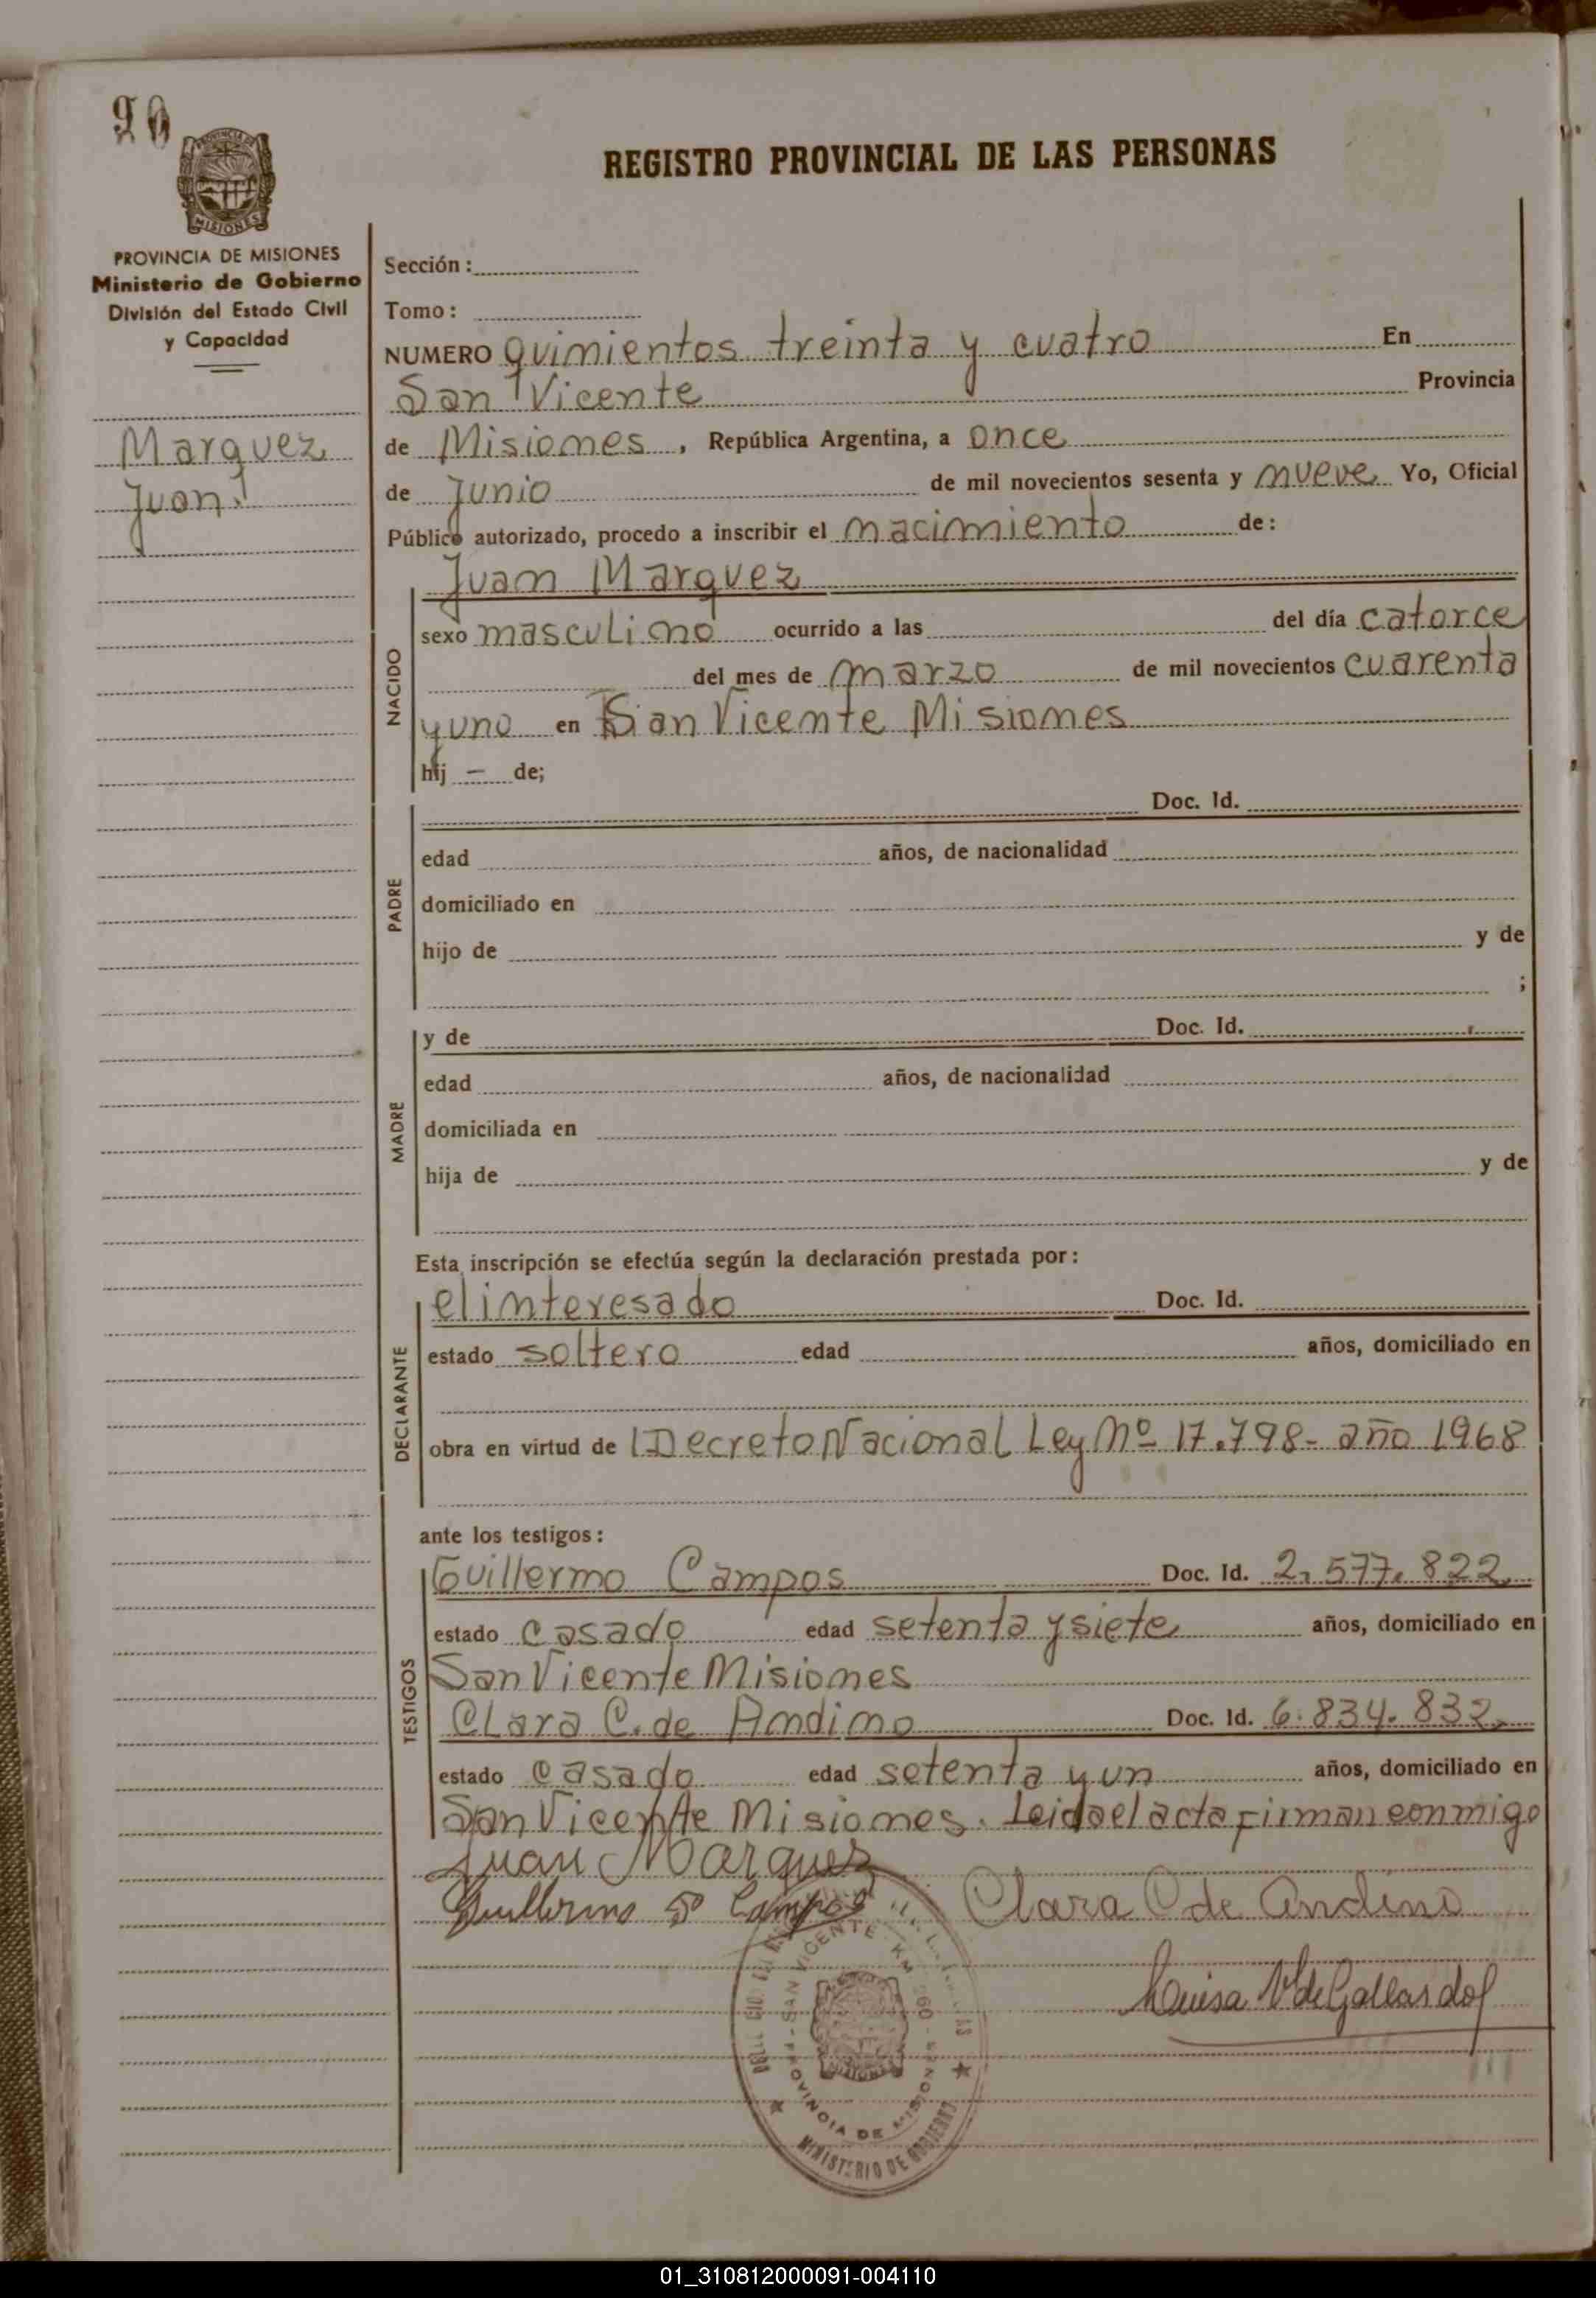 90
PROVINCIA DE
MISIONES
REGISTRO PROVINCIAL DE LAS PERSONAS
PROVINCIA DE MISIONES
Ministerio de Gobierno
División del Estado Civil
y Capacidad
Marquez
Juan
Sección :
Tomo :
NUMERO quinientos treinta y cuatro En
San Vicente Provincia
de Misiones, República Argentina, a once
de Junio de mil novecientos sesenta y nueve Yo, Oficial
Público autorizado, procedo a inscribir el nacimiento de :
NACIDO
Juan Marquez
sexo masculino ocurrido a las del día catorce
del mes de marzo de mil novecientos cuarenta
y uno en San Vicente Misiones
hij - de;
PADRE
Doc. Id.
edad años, de nacionalidad
domiciliado en
hijo de y de
;
MADRE
y de Doc. Id.
edad años, de nacionalidad
domiciliada en
hija de y de
Esta inscripción se efectúa según la declaración prestada por :
DECLARANTE
el interesado Doc. Id.
estado soltero edad años, domiciliado en
obra en virtud de Decreto Nacional Ley Nº 17.798- año 1968
ante los testigos :
TESTIGOS
Guillermo Campos Doc. Id. 2.577.822
estado casado edad setenta y siete años, domiciliado en
San Vicente Misiones
Clara C. de Andino Doc. Id. 6.834.832
estado casado edad setenta y un años, domiciliado en
San Vicente Misiones. Leida el acta firman conmigo
Juan Marquez
Guillermo Campos Clara C de Andino
Luisa V de Gallardo
SAN VICENTE KM 260
PROVINCIA DE MISIONES
MINISTERIO DE GOBIERNO
01_310812000091-004110